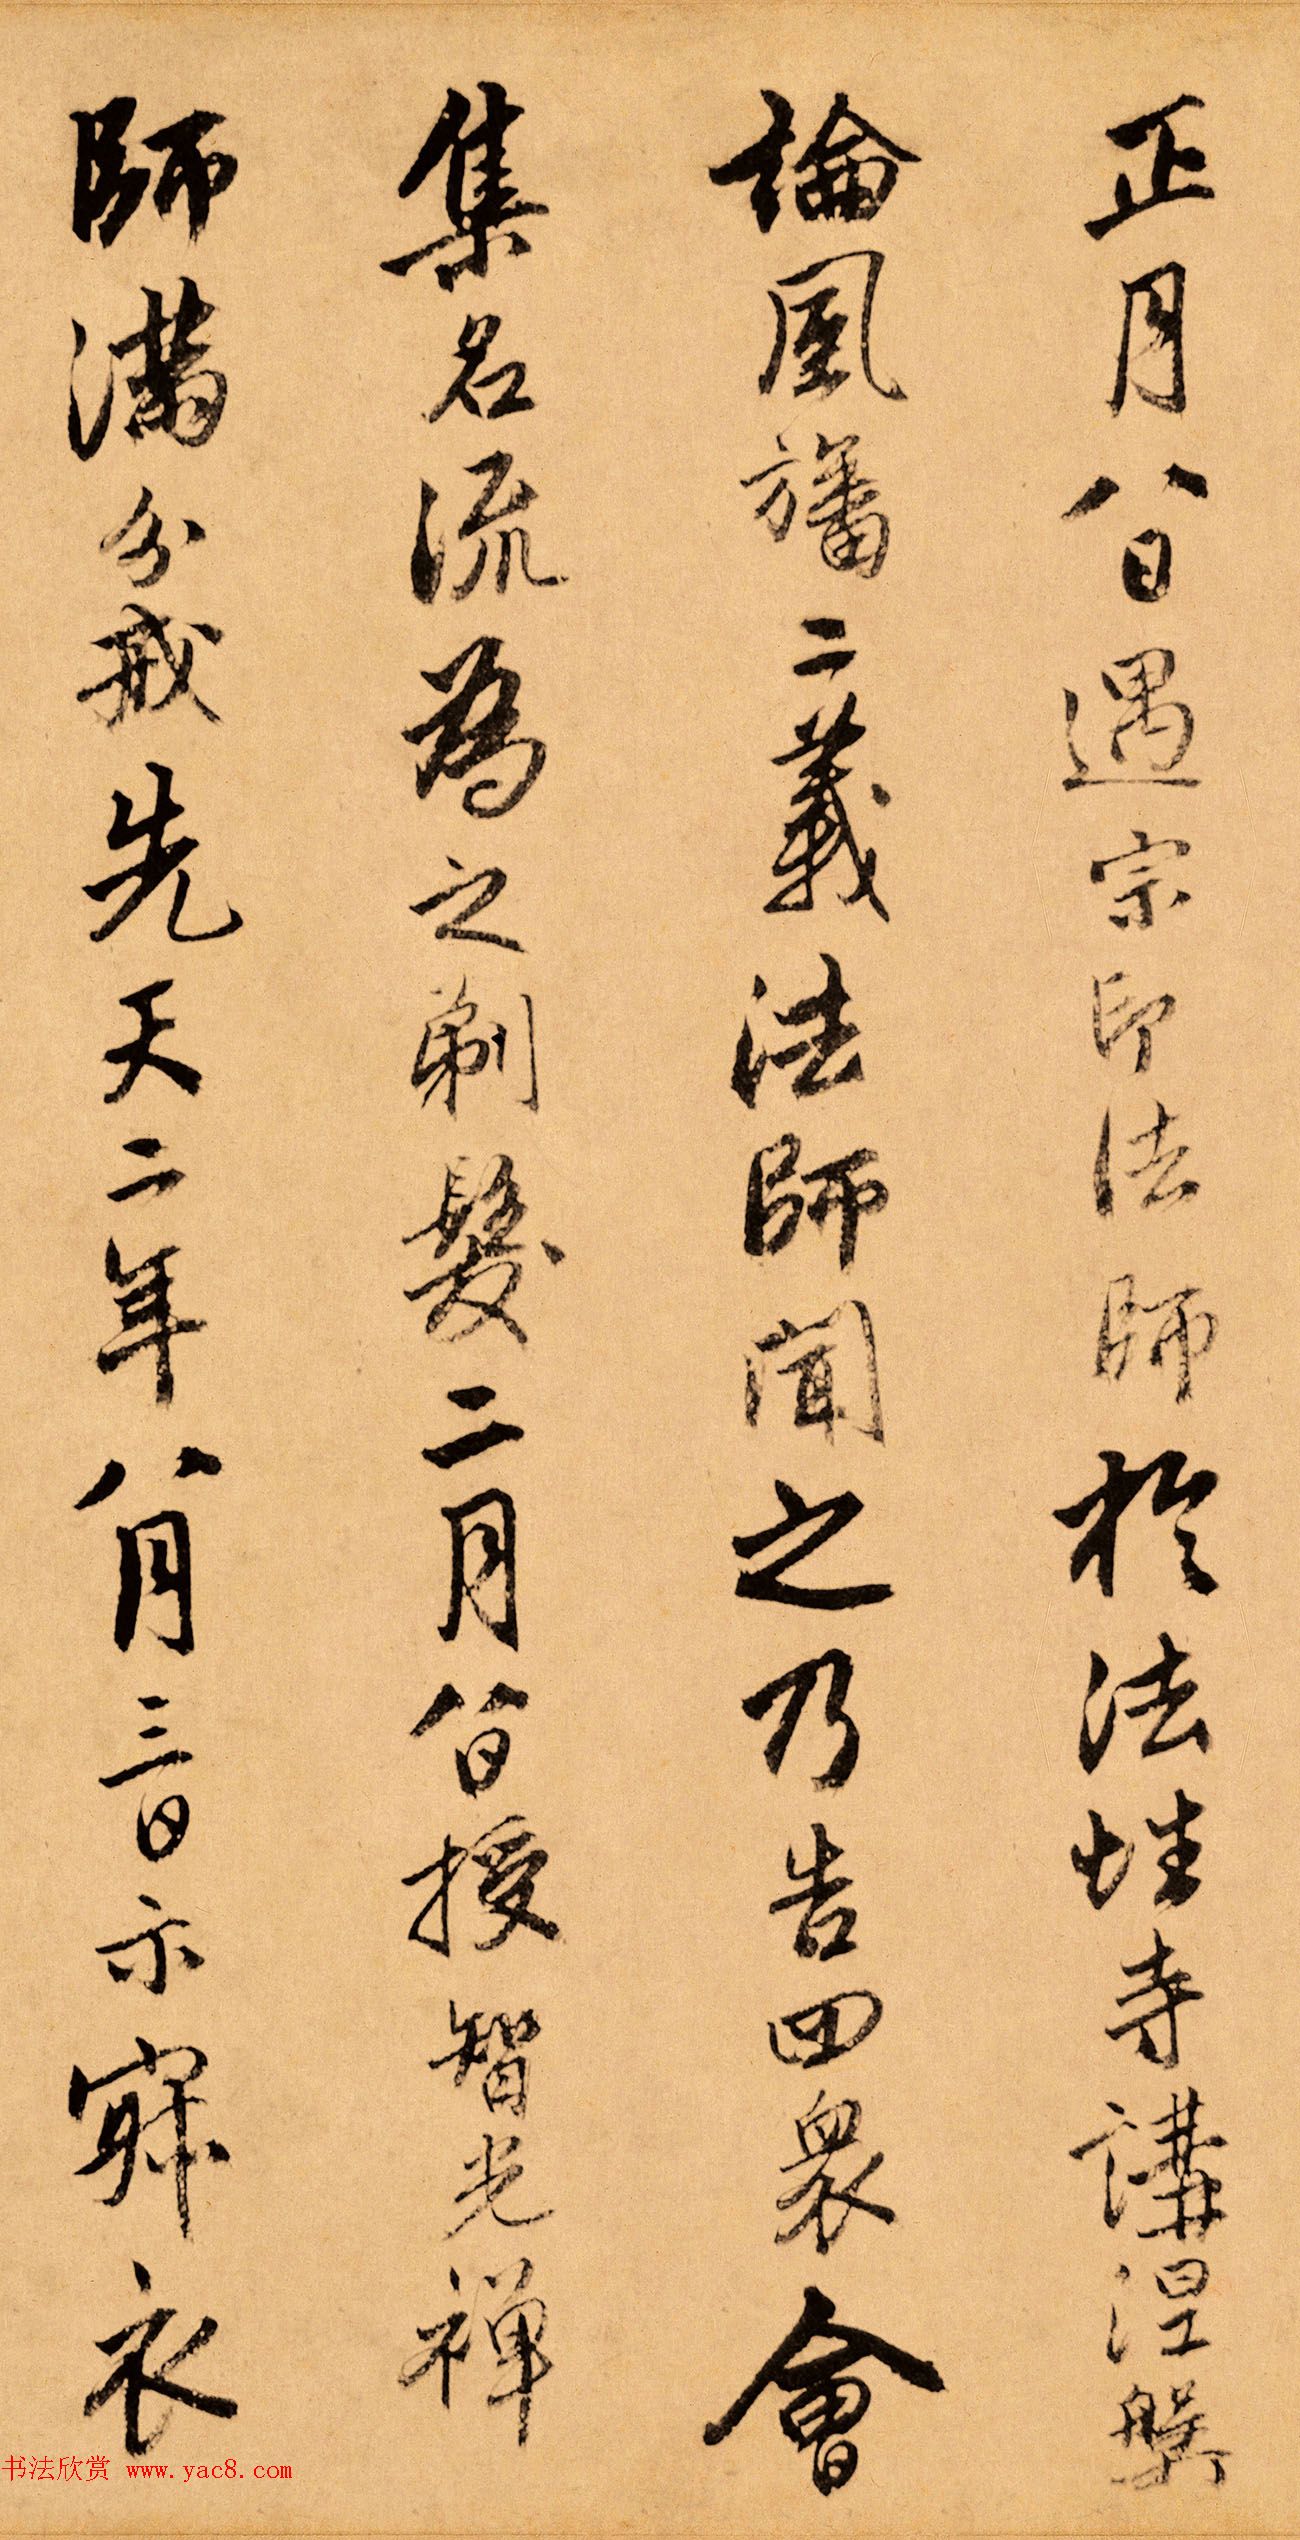 正月八日遇宗印法師於法性寺講涅槃
論風旛二義法師聞之乃告四衆會
集名流為之剃髮二月八日授智光禪
師滿分戒先天二年八月三日示寐衣
书法欣赏 www.yac8.com